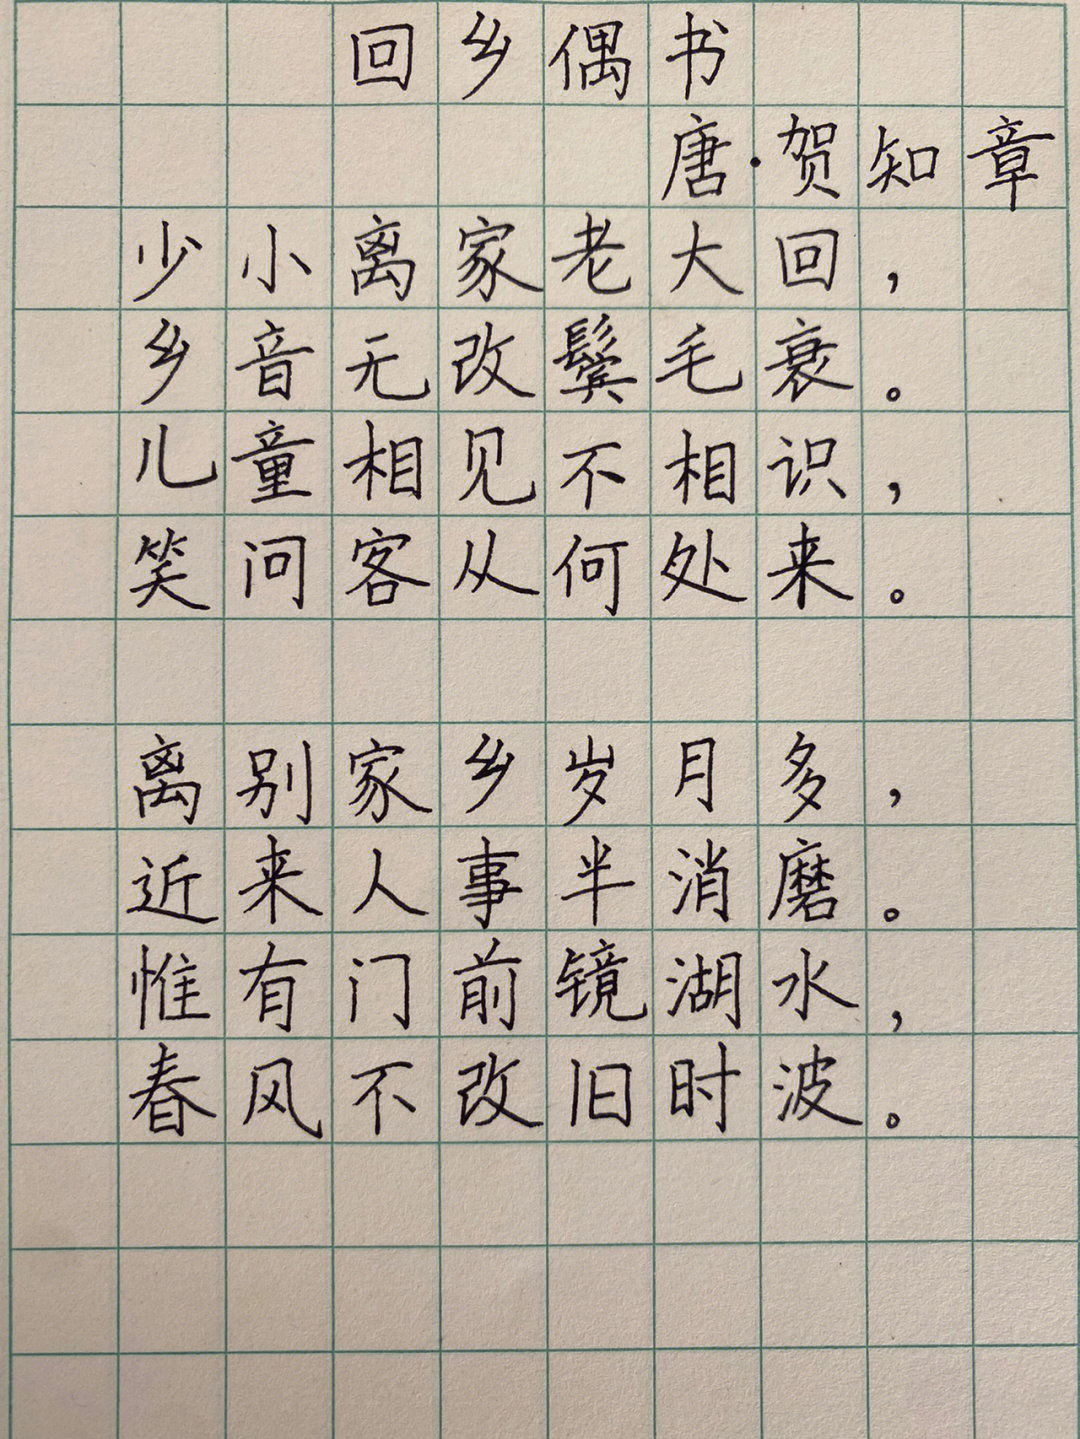 回乡偶书
唐·贺知章
少小离家老大回，
乡音无改鬓毛衰。
儿童相见不相识，
笑问客从何处来。
离别家乡岁月多，
近来人事半消磨。
惟有门前镜湖水，
春风不改旧时波。